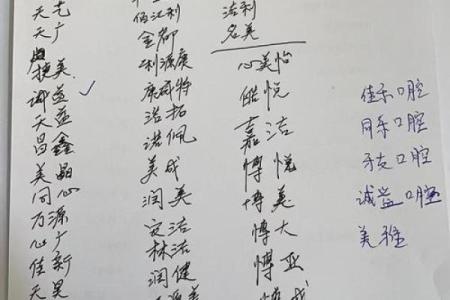 天广
捷美
诚益
天益
昌鑫
美晶
同心
万源
心广
佳新
天昊
金都
利源康
康威特
浩拓
诺佩
美成
润美
安洁
林洁
润健
洁利
名美
心美怡
皓悦
嘉洁
博悦
博美
博大
博亚
博成
佳乐口腔
同乐口腔
牙友口腔
诚益口腔
美雅